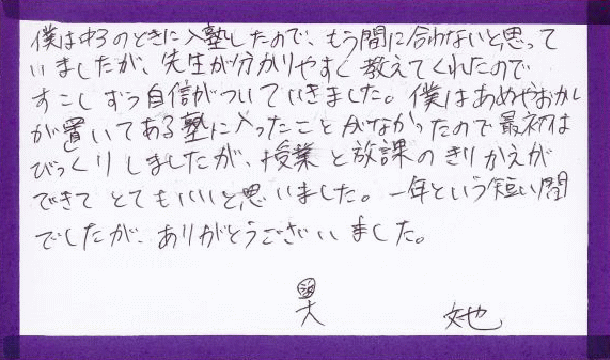 僕は中3のときに入塾したので、もう間に合わないと思って
いましたが、先生が分かりやすく教えてくれたので
すこしずつ自信がついていきました。僕はあめやおかし
が置いてある塾に入ったことがなかったので最初は
びっくりしましたが、授業と放課のきりかえが
できてとてもいいと思いました。一年という短い間
でしたが、ありがとうございました。